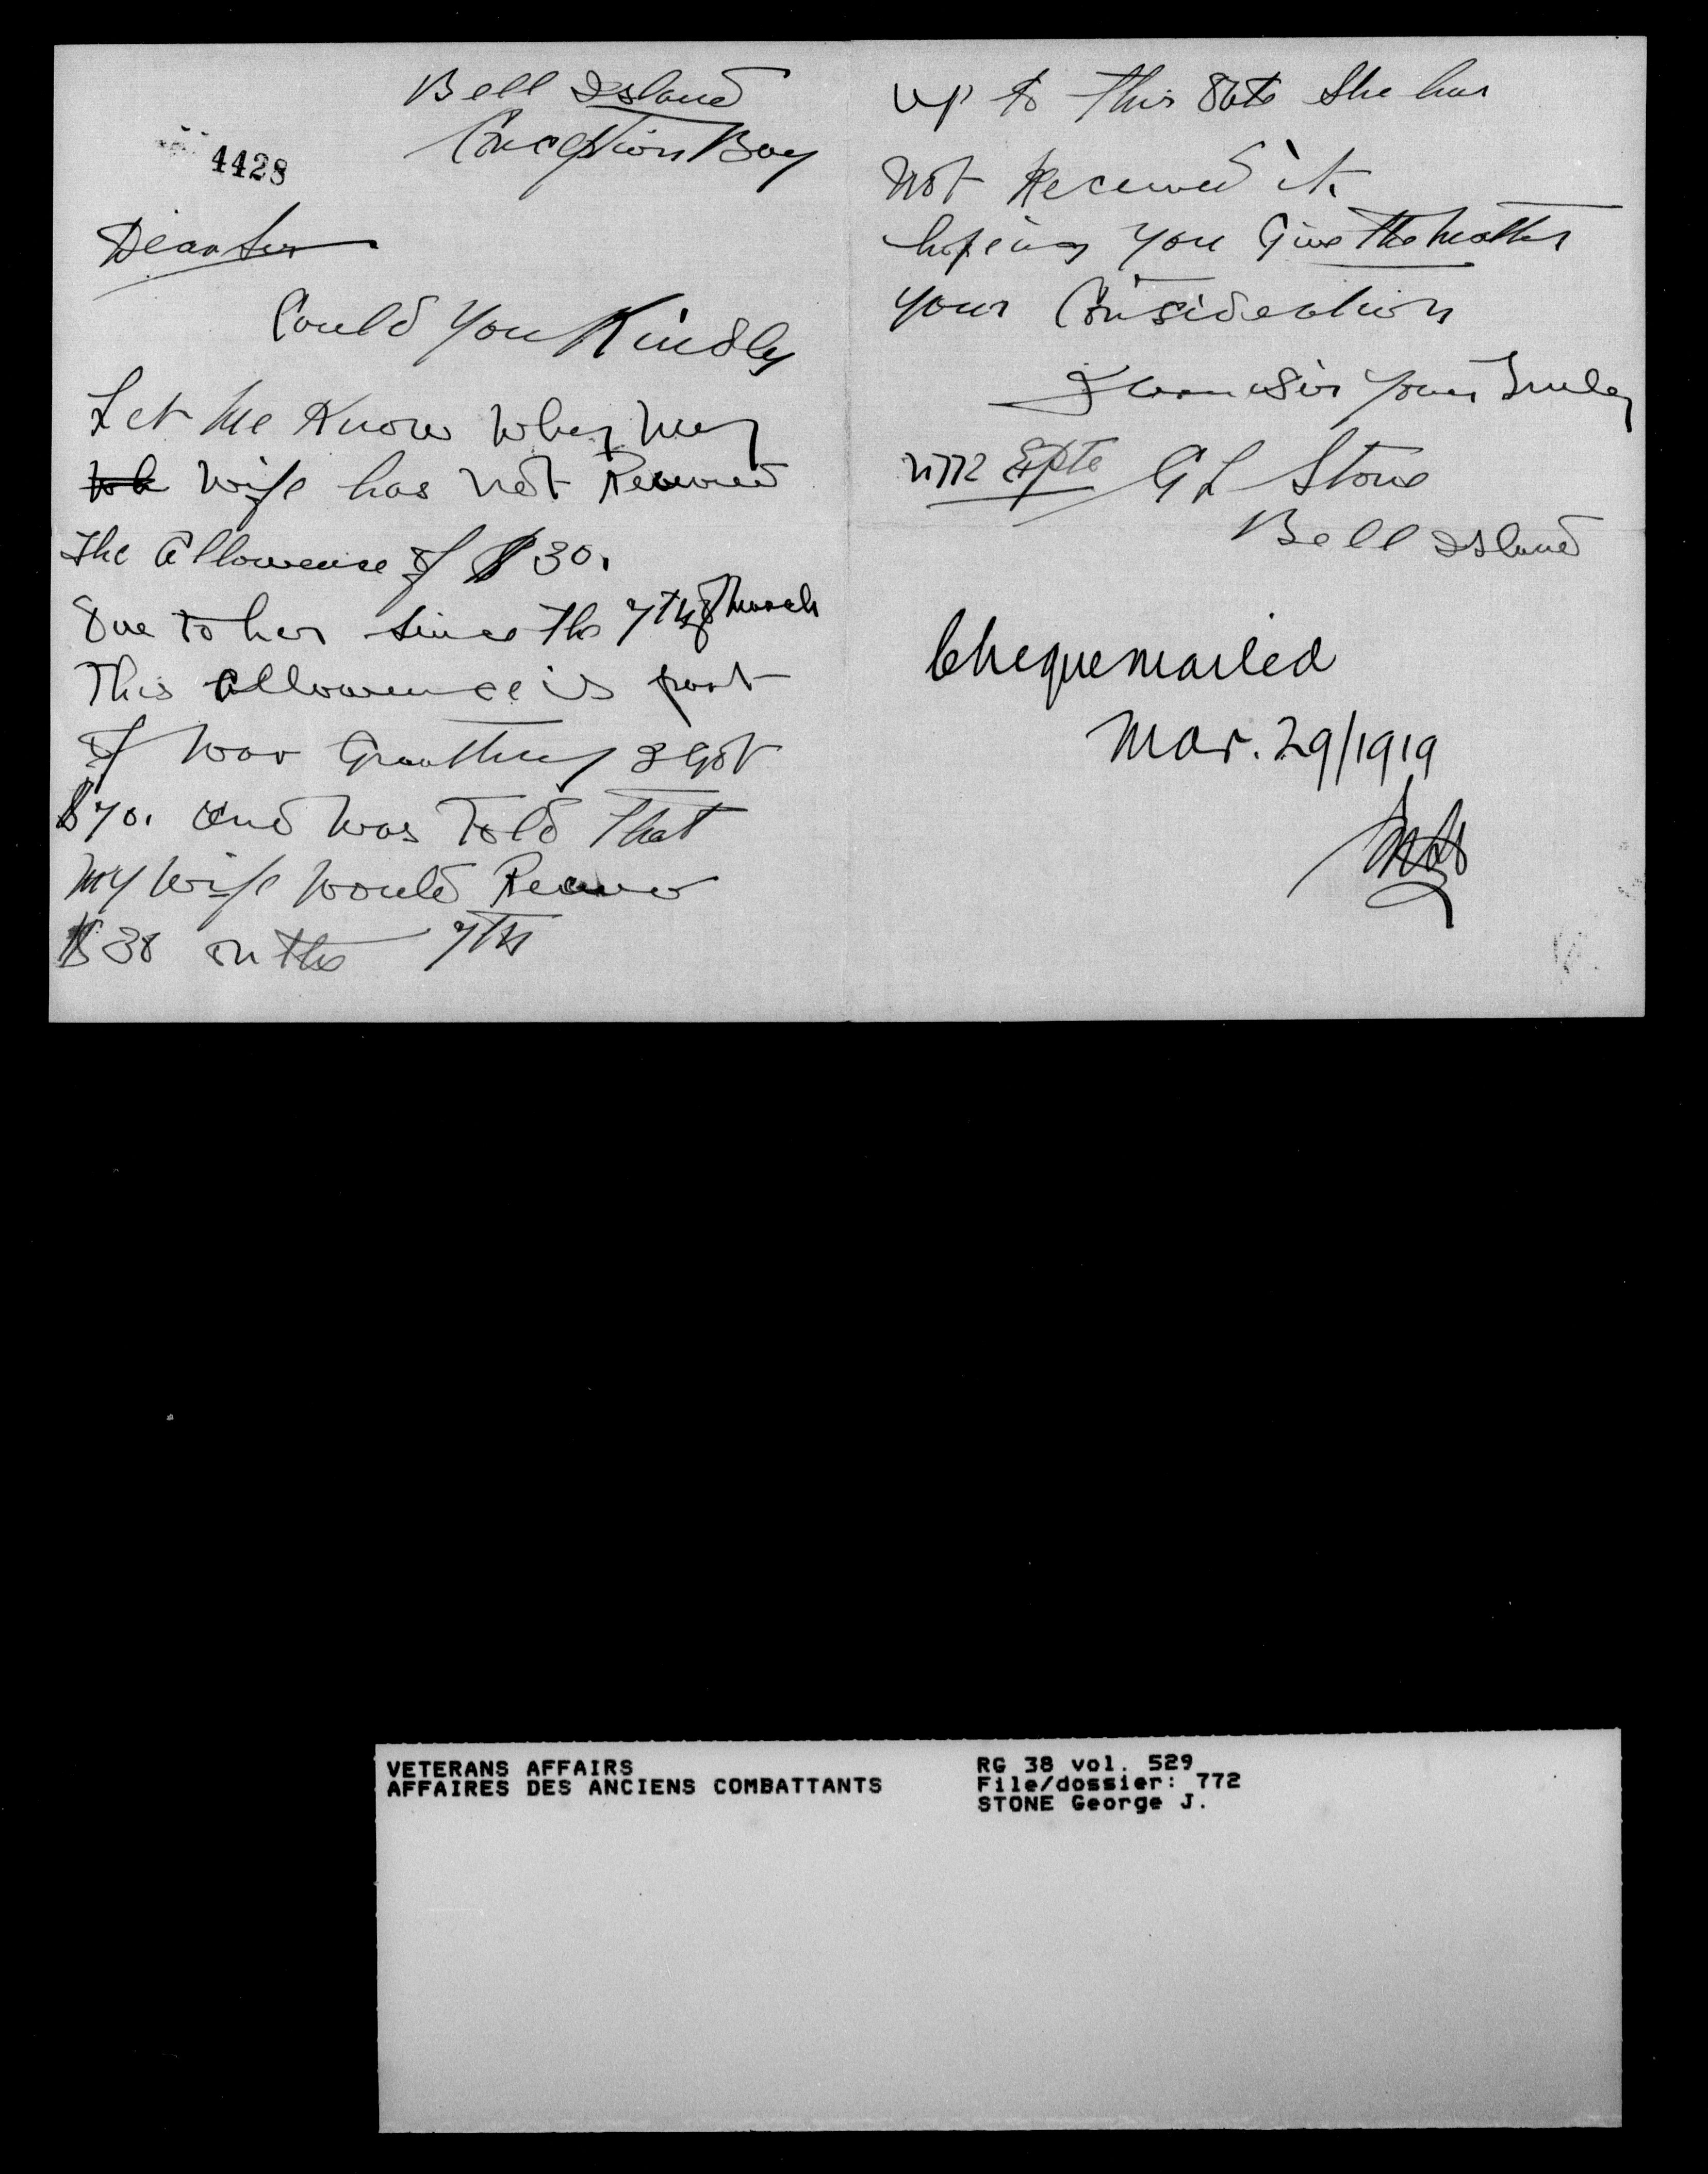 Bell Island
Conception Bay
4428
Dear Sir
Could You Kindly
Let Me Know Whey my
wife has not Received
The Allowence of $30.
Due to her Since The 7th of March
This Allowence is part
of War I Got
$70. and Was Told That
My Wife Would Receive
$30 on the 7th
up to This Date She has
Not Received it.
hopeing You Give The Matter
Your Consideration
I am Sir Yours Truley
N 772 G L Stone
Bell Island
Cheque mailed
Mar. 29/1919
VETERANS AFFAIRS
AFFAIRES DES ANCIENS COMBATTANTS
RG 38 vol. 529
File/dossier: 772
STONE George J.